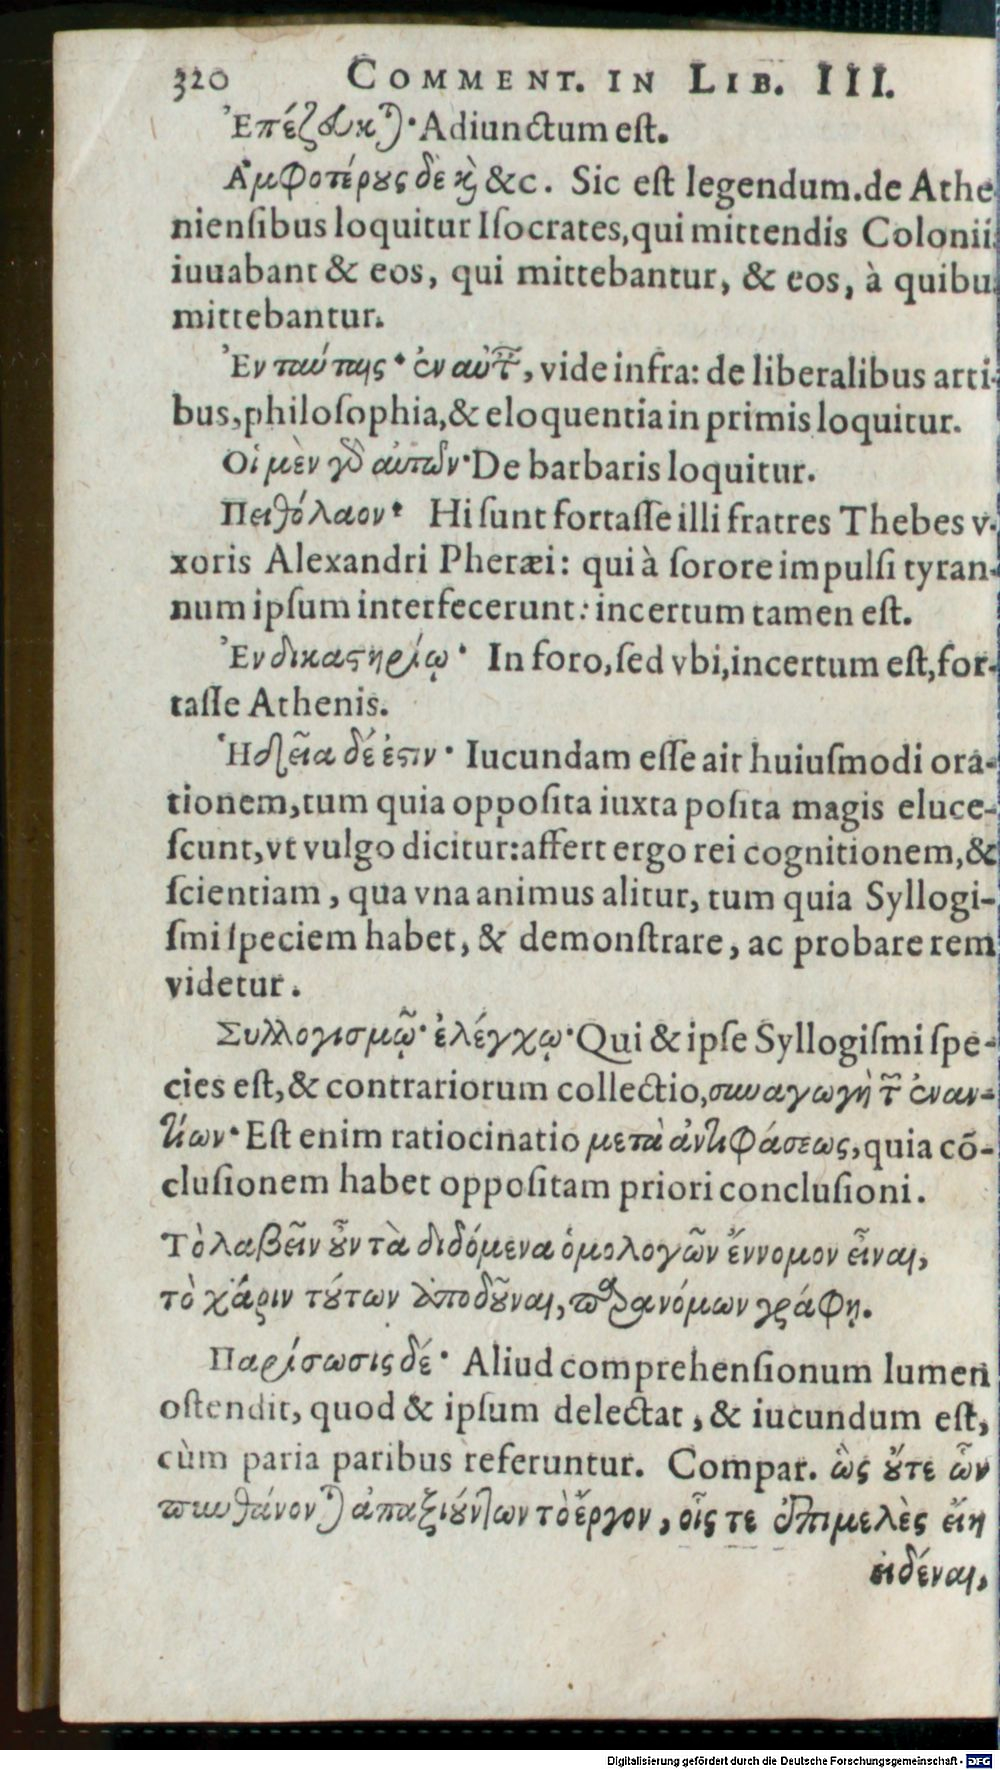 320 COMMENT. IN LIB. III.
Ἐπέζευκται· Adiunctum eſt.
Ἀμφοτέρους δὲ καὶ &c. Sic eſt legendum. de Athe
nienſibus loquitur Iſocrates, qui mittendis Colonii
iuuabant & eos, qui mittebantur, & eos, à quibu
mittebantur.
Ἐν ταύταις· ἐν αὐτ, vide infra: de liberalibus arti-
bus, philoſophia, & eloquentia in primis loquitur.
Οἱ μὲν γὸ αὐτῶν· De barbaris loquitur.
Πειθόλαον· Hi ſunt fortaſſe illi fratres Thebes v-
xoris Alexandri Pheræi: qui à ſorore impulſi tyran-
num ipſum interfecerunt: incertum tamen eſt.
Ἐν δικαςηρίῳ· In foro, ſed vbi, incertum eſt, for-
taſſe Athenis.
Ἡδεῖα δέ ἐςιν· Iucundam eſſe ait huiuſmodi ora-
tionem, tum quia oppoſita iuxta poſita magis eluce-
ſcunt, vt vulgo dicitur: affert ergo rei cognitionem, &
ſcientiam, qua vna animus alitur, tum quia Syllogi-
ſmi ſpeciem habet, & demonſtrare, ac probare rem
videtur.
Συλλογισμῷ· ἐλέγχῳ· Qui & ipſe Syllogiſmi ſpe-
cies eſt, & contrariorum collectio, συναγωγὴ τῶν ἐναν-
τίων· Eſt enim ratiocinatio μετὰ ἀντιφάσεως, quia cõ-
cluſionem habet oppoſitam priori concluſioni.
Τὸ λαβεῖν οὖν τὰ διδόμενα ὁμολογῶν ἔννομον εἶναι,
τὸ χάριν τούτων ἀποδοῦναι, παρανόμων γράφῃ.
Παρίσωσις δέ· Aliud comprehenſionum lumen
oſtendit, quod & ipſum delectat, & iucundum eſt,
cùm paria paribus referuntur. Compar. ὡς οὔτε ὧν
πυνθάνονται ἀπαξιούντων τὸ ἔργον, οἷς τε ἐπιμελὲς εἴη
εἰδέναι,
Digitalisierung gefördert durch die Deutsche Forschungsgemeinschaft - DFG